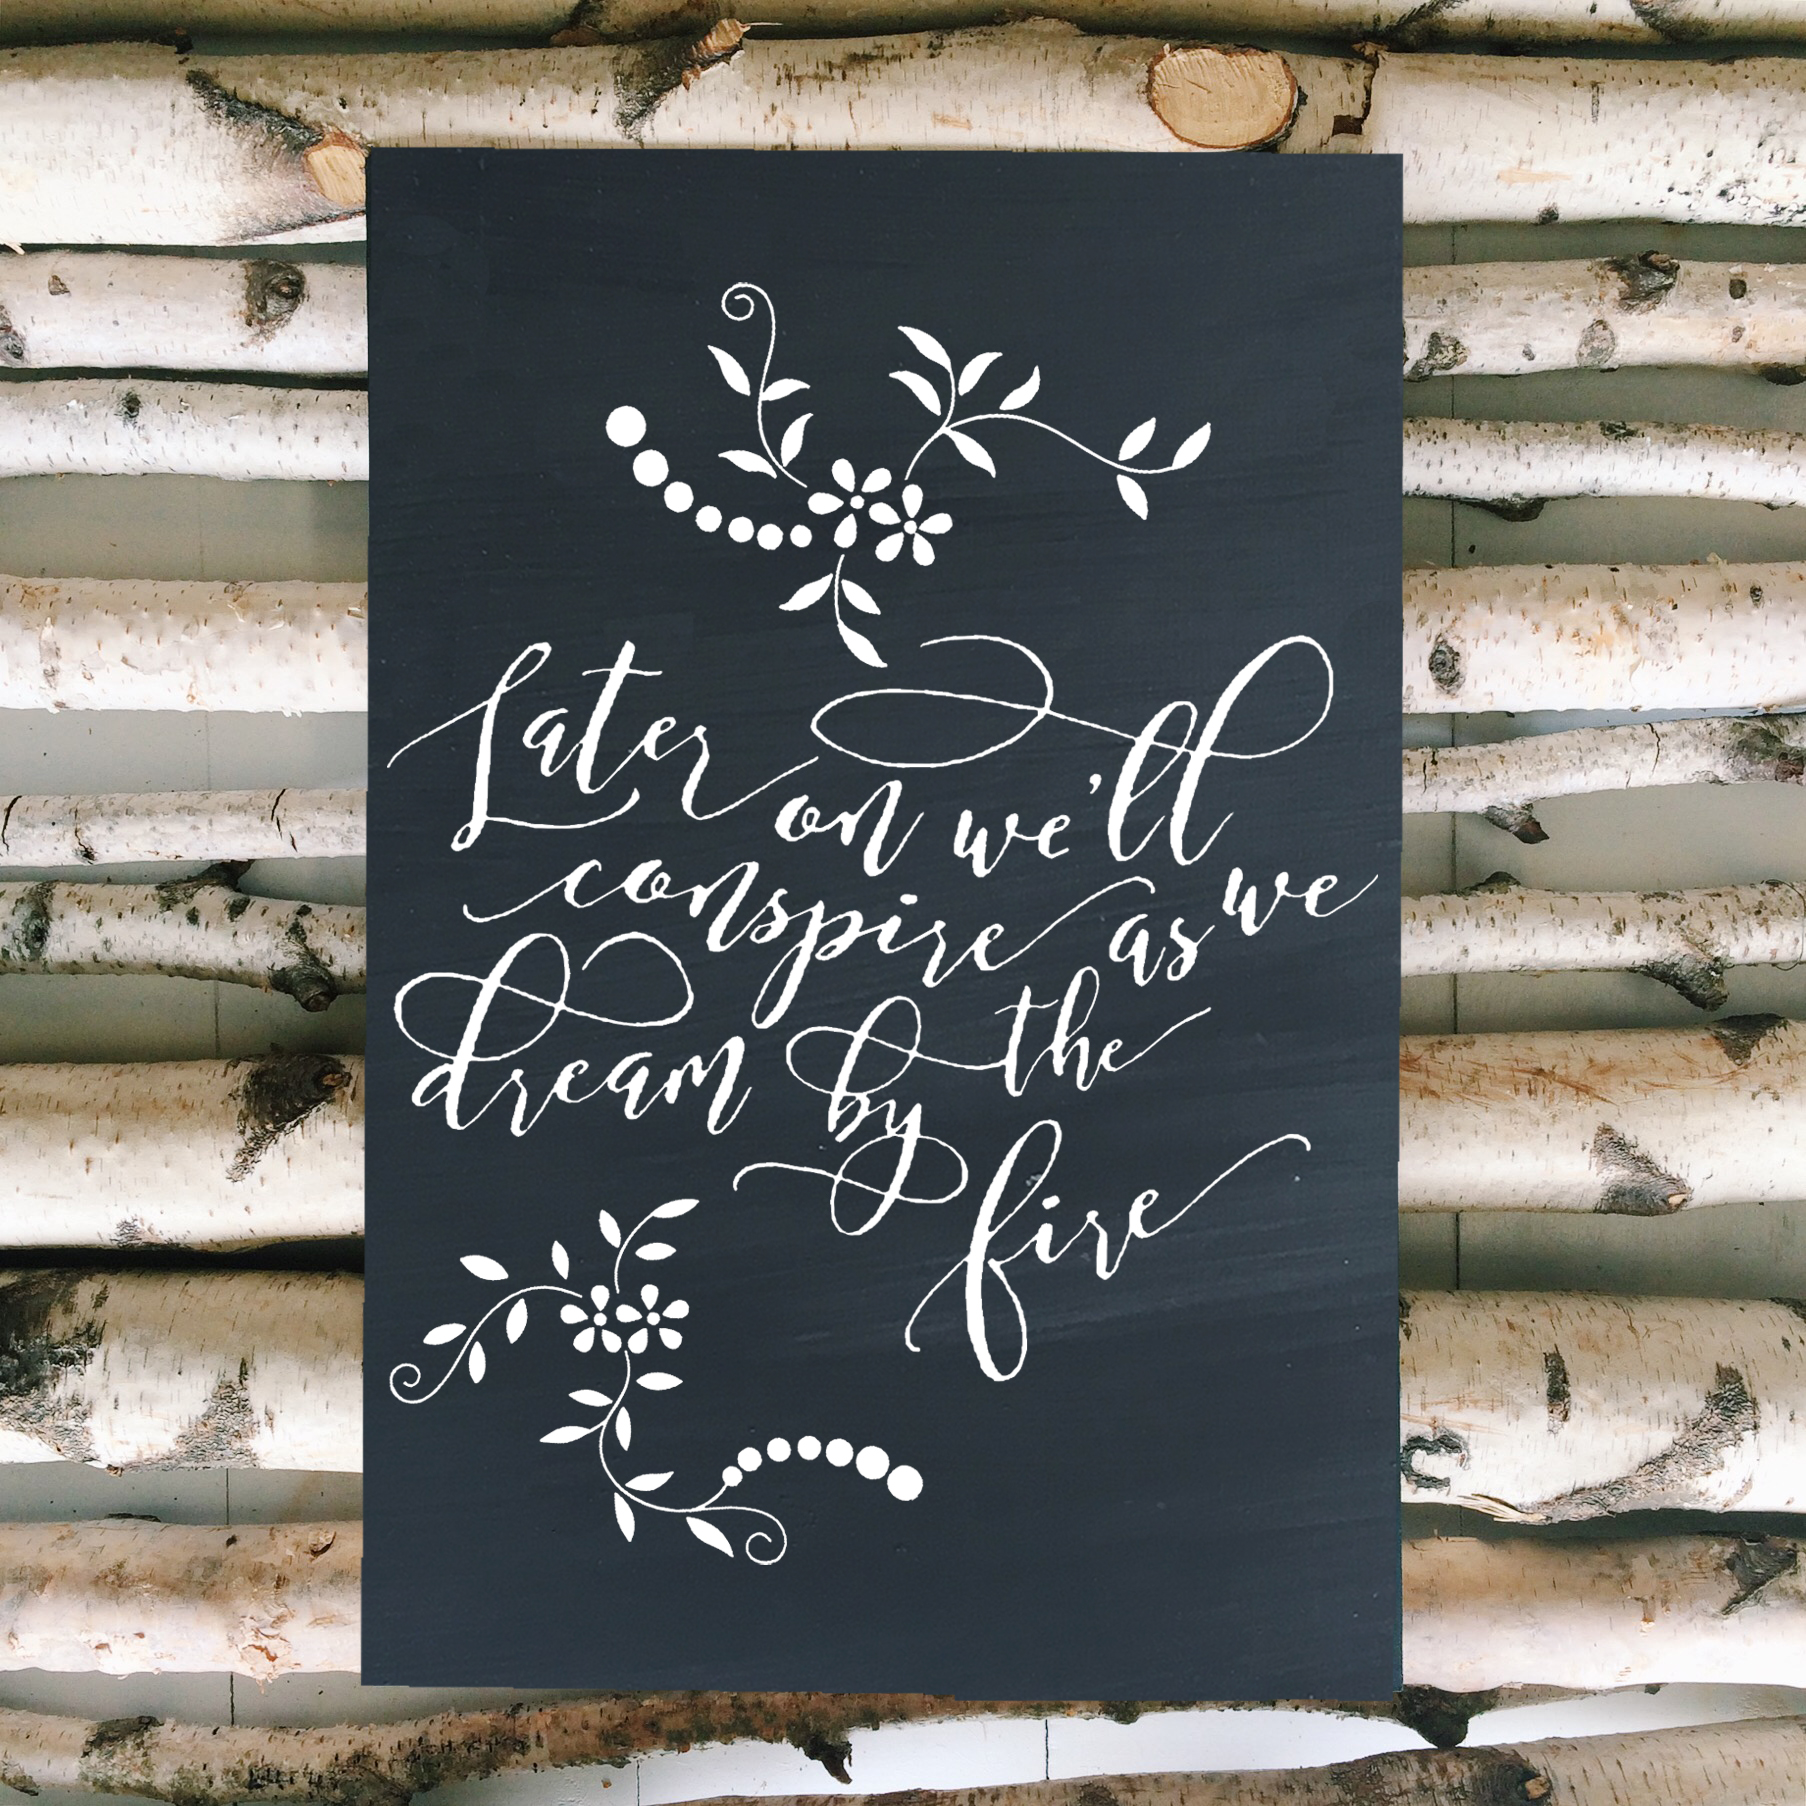 Later on we'll
conspire as we
dream by the
fire